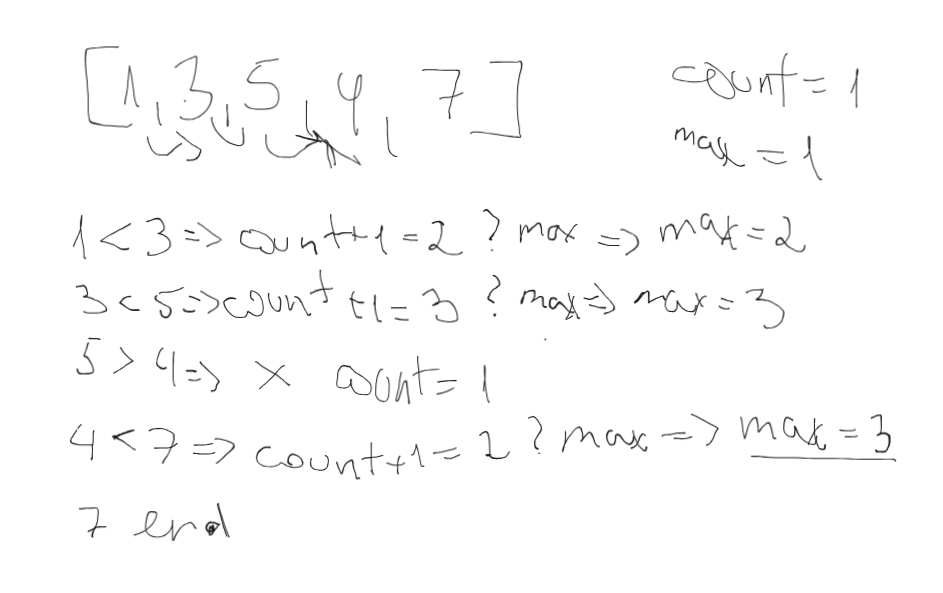 [1,3,5,4,7]
count=1
max=1
1<3=>count+1=2 ? max => max=2
3<5=>count+1=3 ? max=> max=3
5>4=> × count=1
4<7=>count+1=2 ? max=> max=3
7 end